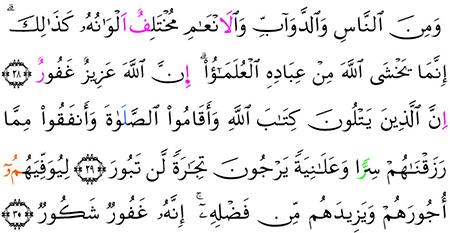 وَمِنَ النَّاسِ وَالدَّوَآبِّ وَالَانْعَٰمِ مُخْتَلِفٌ اَلْوَٰنُهُۥ كَذَٰلِكَۗ
إِنَّمَا يَخْشَى اللَّهَ مِنْ عِبَادِهِ الْعُلَمَٰٓؤُاْۗ إِنَّ اللَّهَ عَزِيزٌ غَفُورٌ ٢٨
اِنَّ الَّذِينَ يَتْلُونَ كِتَٰبَ اللَّهِ وَأَقَامُواْ الصَّلَوٰةَ وَأَنفَقُواْ مِمَّا
رَزَقْنَٰهُمْ سِرًّا وَعَلَانِيَةً يَرْجُونَ تِجَٰرَةً لَّن تَبُورَ ٢٩ لِيُوَفِّيَهُمُۥٓ
أُجُورَهُمْ وَيَزِيدَهُم مِّن فَضْلِهِۦٓۚ إِنَّهُۥ غَفُورٌ شَكُورٌ ٣٠